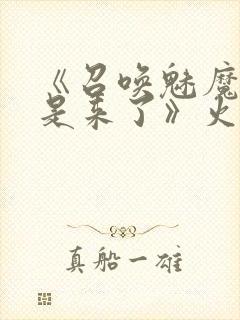 《召唤魅魔
是来了》火
真船一雄